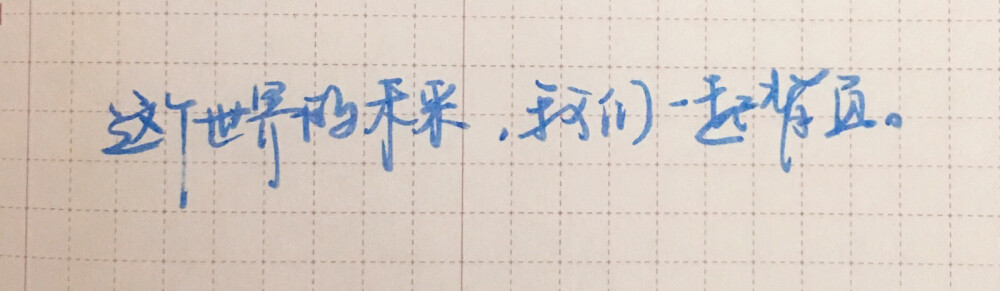 这个世界的未来,我们一起背负。